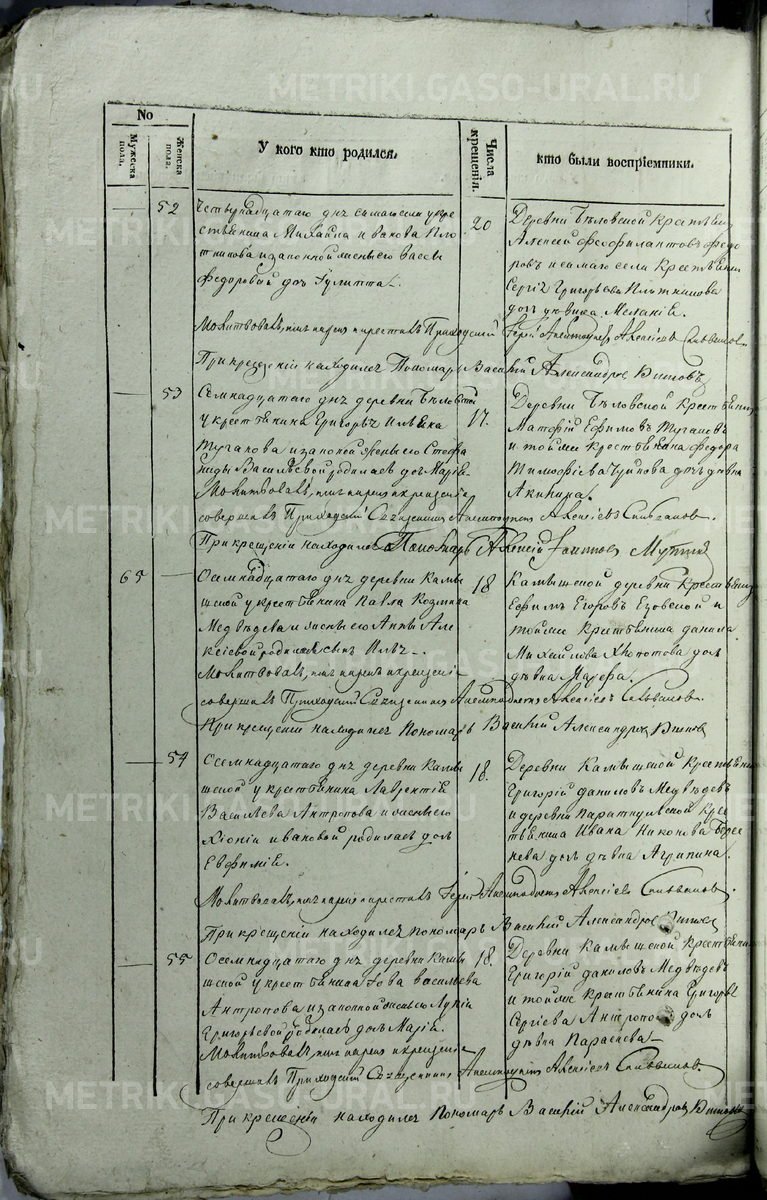 METRIKI.GASO-URAL.RU
No
Мужеска пола.
Женска пола.
У кого кто родился.
Числа крещенія.
кто были воспріемники.
52
Четвернадцатаго дня самаго села у кре
стьянина Михайла Иванова Пло
тникова и законной жены его Васы
Федоровой дочь Гулитта.
20
Деревни Бѣловской Крестьянинъ
Алексей Феофилактовъ Федо
ровъ и самаго села Крестьянина
Сергія Григорьева Плотникова
дочь девица Меланія.
Молитвовалъ, имя нарекъ и крестилъ Приходскій Іерей Анемподистъ Алексіевъ
При крещеніи находился Пономарь Василій Александровъ
53
Семнадцатаго дня деревни Бѣловской
у крестьянина Григорья Ильина
Тугакова и законной жены его Стефа
ниды Васильевой родилась дочь Марія.
17.
Деревни Бѣловской Крестьянинъ
Матфій Ефимовъ Тугаковъ
и тойже крестьянина Федора
Тимофіева дочь девица
Акилина.
Молитвовалъ, имя нарекъ и крещеніе
совершилъ Приходскій Священникъ Анемподистъ Алексіевъ
При крещеніи находился Пономарь Алексій
65
Осемнадцатаго дня деревни Камы
шской у крестьянина Павла Козмина
Медведева и жены его Анны Але
ксіевой родился сынъ Илья.
18
Камышской деревни Крестьянинъ
Ефимъ Егоровъ и
тойже крестьянина Данила
Михайлова Хлопотова дочь
девица Марфа.
Молитвовалъ, имя нарекъ и крещеніе
совершилъ Приходскій Священникъ Анемподистъ Алексіевъ
При крещеніи находился Пономарь Василій Александровъ
54
Осемнадцатаго дня деревни Камы
шской у крестьянина Лаврентія
Васильева Антропова и жены его
Хіоніи Ивановой родилась дочь
Евфимія.
18.
Деревни Камышской Крестьянинъ
Григорій Даниловъ Медвѣдевъ
и деревни Параткульской Кре
стьянина Ивана Никонова Бере
нева дочь девица Агрипина.
Молитвовалъ, имя нарекъ и крестилъ Іерей Анемподистъ Алексіевъ
При крещеніи находился пономарь Василій Александровъ
55
Осемнадцатаго дня деревни Камы
шской у крестьянина Іова Васильева
Антропова и законной жены его Лукіи
Григорьевой родилась дочь Марія.
18.
Деревни Камышской Крестьянинъ
Григорій Даниловъ Медвѣдевъ
и тойже крестьянина Григорья
Сергіева Антропова дочь
девица Параскева
Молитвовалъ, имя нарекъ и крещеніе
совершилъ Приходскій Священникъ Анемподистъ Алексіевъ
При крещеніи находился Пономарь Василій Александровъ